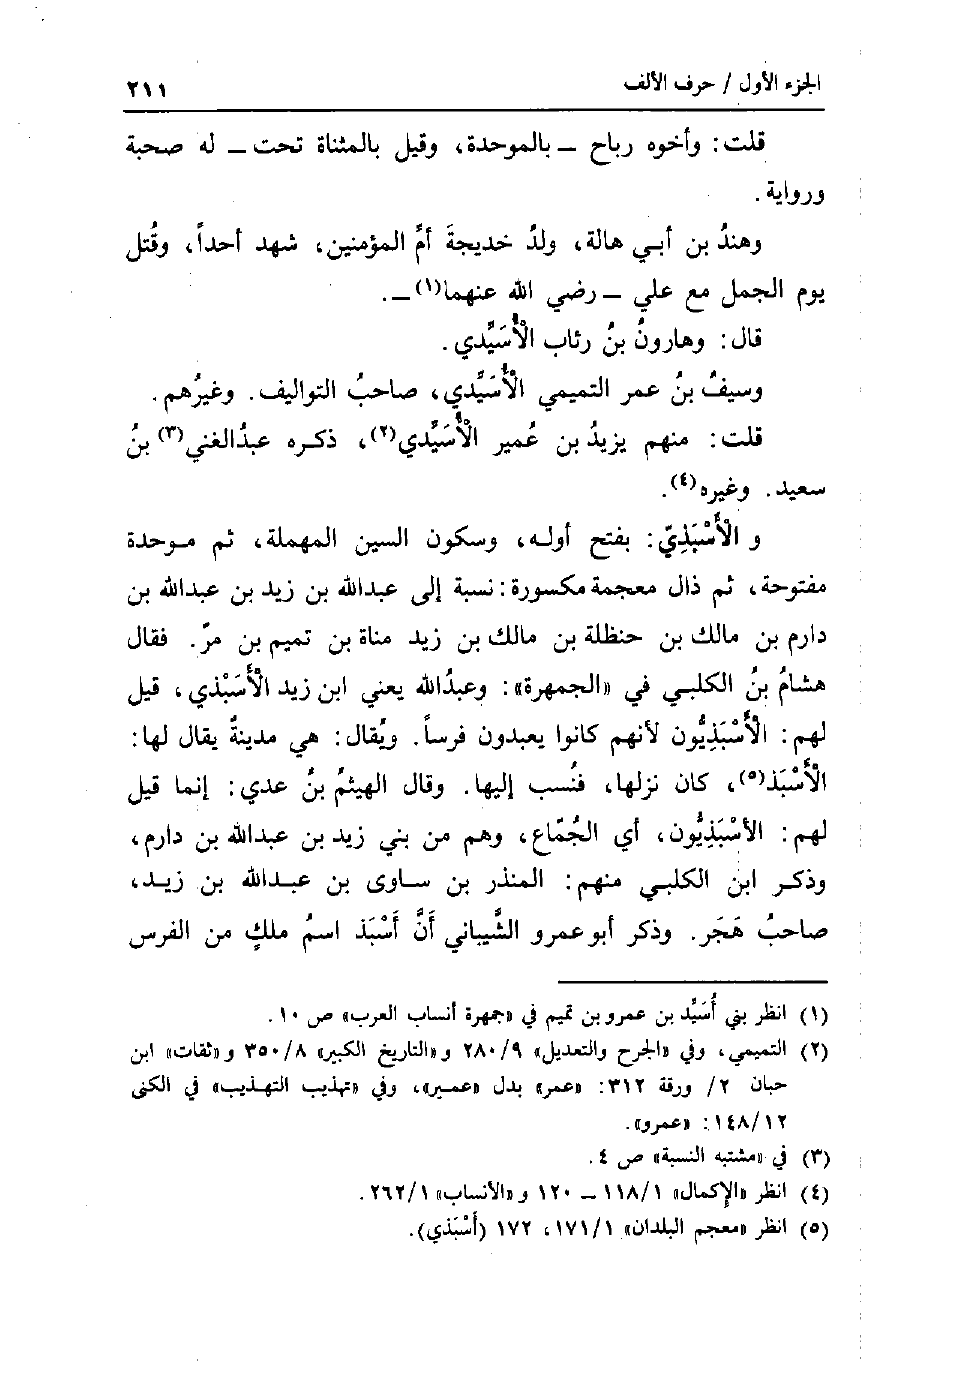 الجزء الأول / حرف الألف ٢١١
قلت: وأخوه رباح ــ بالموحدة، وقيل بالمثناة تحت ــ له صحبة
ورواية .
وهندُ بن أبـي هالة، ولدُ خديجةَ أمِّ المؤمنين، شهد أحداً، وقُتل
يوم الجمل مع علي ــ رضي الله عنهما(١)ــ .
قال: وهارونُ بنُ رئاب الْأُسَيِّدي .
وسيفُ بنُ عمر التميمي الْأُسَيِّدي، صاحبُ التواليف. وغيرُهم .
قلت: منهم يزيدُ بن عُمير الْأُسَيِّدي(٢)، ذكره عبدُالغني(٣) بنُ
سعيد. وغيره(٤).
و الْأَسْبَذِيّ: بفتح أوله، وسكون السين المهملة، ثم موحدة
مفتوحة، ثم ذال معجمة مكسورة: نسبة إلى عبدالله بن زيد بن عبدالله بن
دارم بن مالك بن حنظلة بن مالك بن زيد مناة بن تميم بن مرّ. فقال
هشامُ بنُ الكلبـي في «الجمهرة»: وعبدُالله يعني ابن زيد الْأَسْبَذي، قيل
لهم: الْأَسْبَذِيُّون لأنهم كانوا يعبدون فرساً. ويُقال: هي مدينةٌ يقال لها:
الْأَسْبَذ(٥)، كان نزلها، فنُسب إليها. وقال الهيثمُ بنُ عدي: إنما قيل
لهم: الأسْبَذِيُّون، أي الجُمّاع، وهم من بني زيد بن عبدالله بن دارم،
وذكر ابن الكلبـي منهم: المنذر بن ساوى بن عبدالله بن زيد،
صاحبُ هَجَر. وذكر أبو عمرو الشَّيباني أنَّ أَسْبَذ اسمُ ملكٍ من الفرس
(١) انظر بني أُسَيِّد بن عمرو بن تميم في «جمهرة أنساب العرب» ص ١٠ .
(٢) التميمي، وفي «الجرح والتعديل» ٢٨٠/٩ و «التاريخ الكبير» ٣٥٠/٨ و «ثقات» ابن
حبان ٢/ ورقة ٣١٢: «عمر» بدل «عمير»، وفي «تهذيب التهذيب» في الكنى
١٤٨/١٢: «عمرو».
(٣) في «مشتبه النسبة» ص ٤ .
(٤) انظر «الإكمال» ١١٨/١ ــ ١٢٠ و «الأنساب» ٢٦٢/١ .
(٥) انظر «معجم البلدان» ١٧١/١، ١٧٢ (أَسْبَذي).